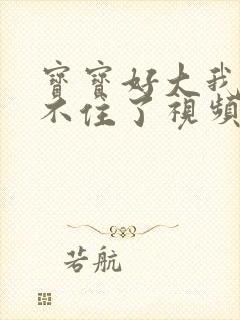 寶寶好大我
不住了視頻
若航